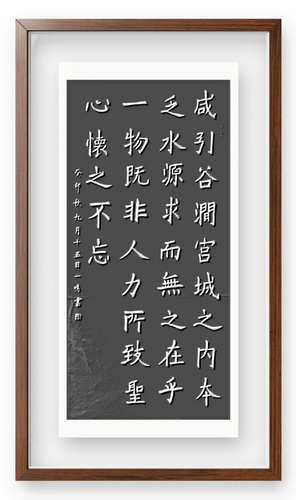 咸引谷澗宫城之内本
乏水源求而無之在乎
一物既非人力所致聖
心懐之不忘
癸卯秋九月十五日一鸣書